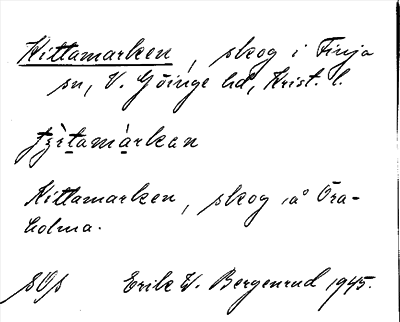 Kittamarken, skog i Finja
sn, V. Göinge hd, Krist. l.
tʒìtamàrkan
Kittamarken, skog på Öra-
holma.
SOp Erik W. Bergenrud 1945.